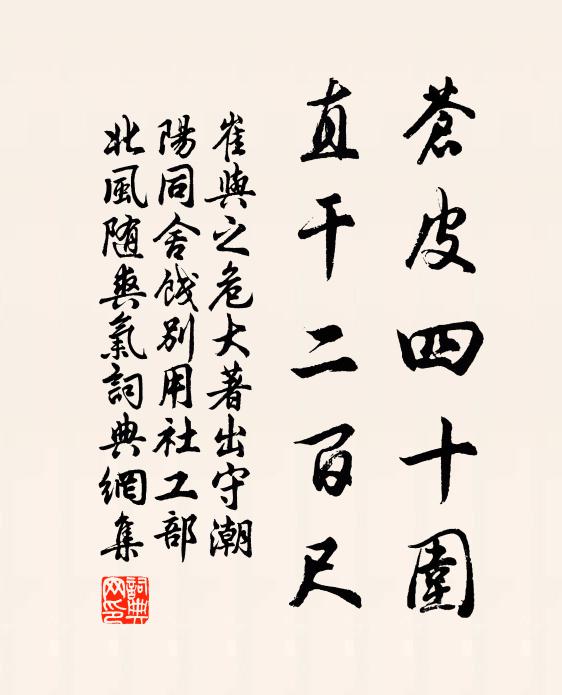 蒼皮四十圍
直干二百尺
崔與之危大著出守潮
陽同舍餞別用社工部
北風随爽氣詞典網集
詞典
网印